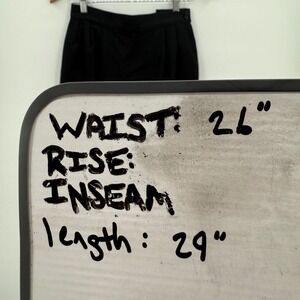 WAIST: 26"
RISE:
INSEAM
length: 29"